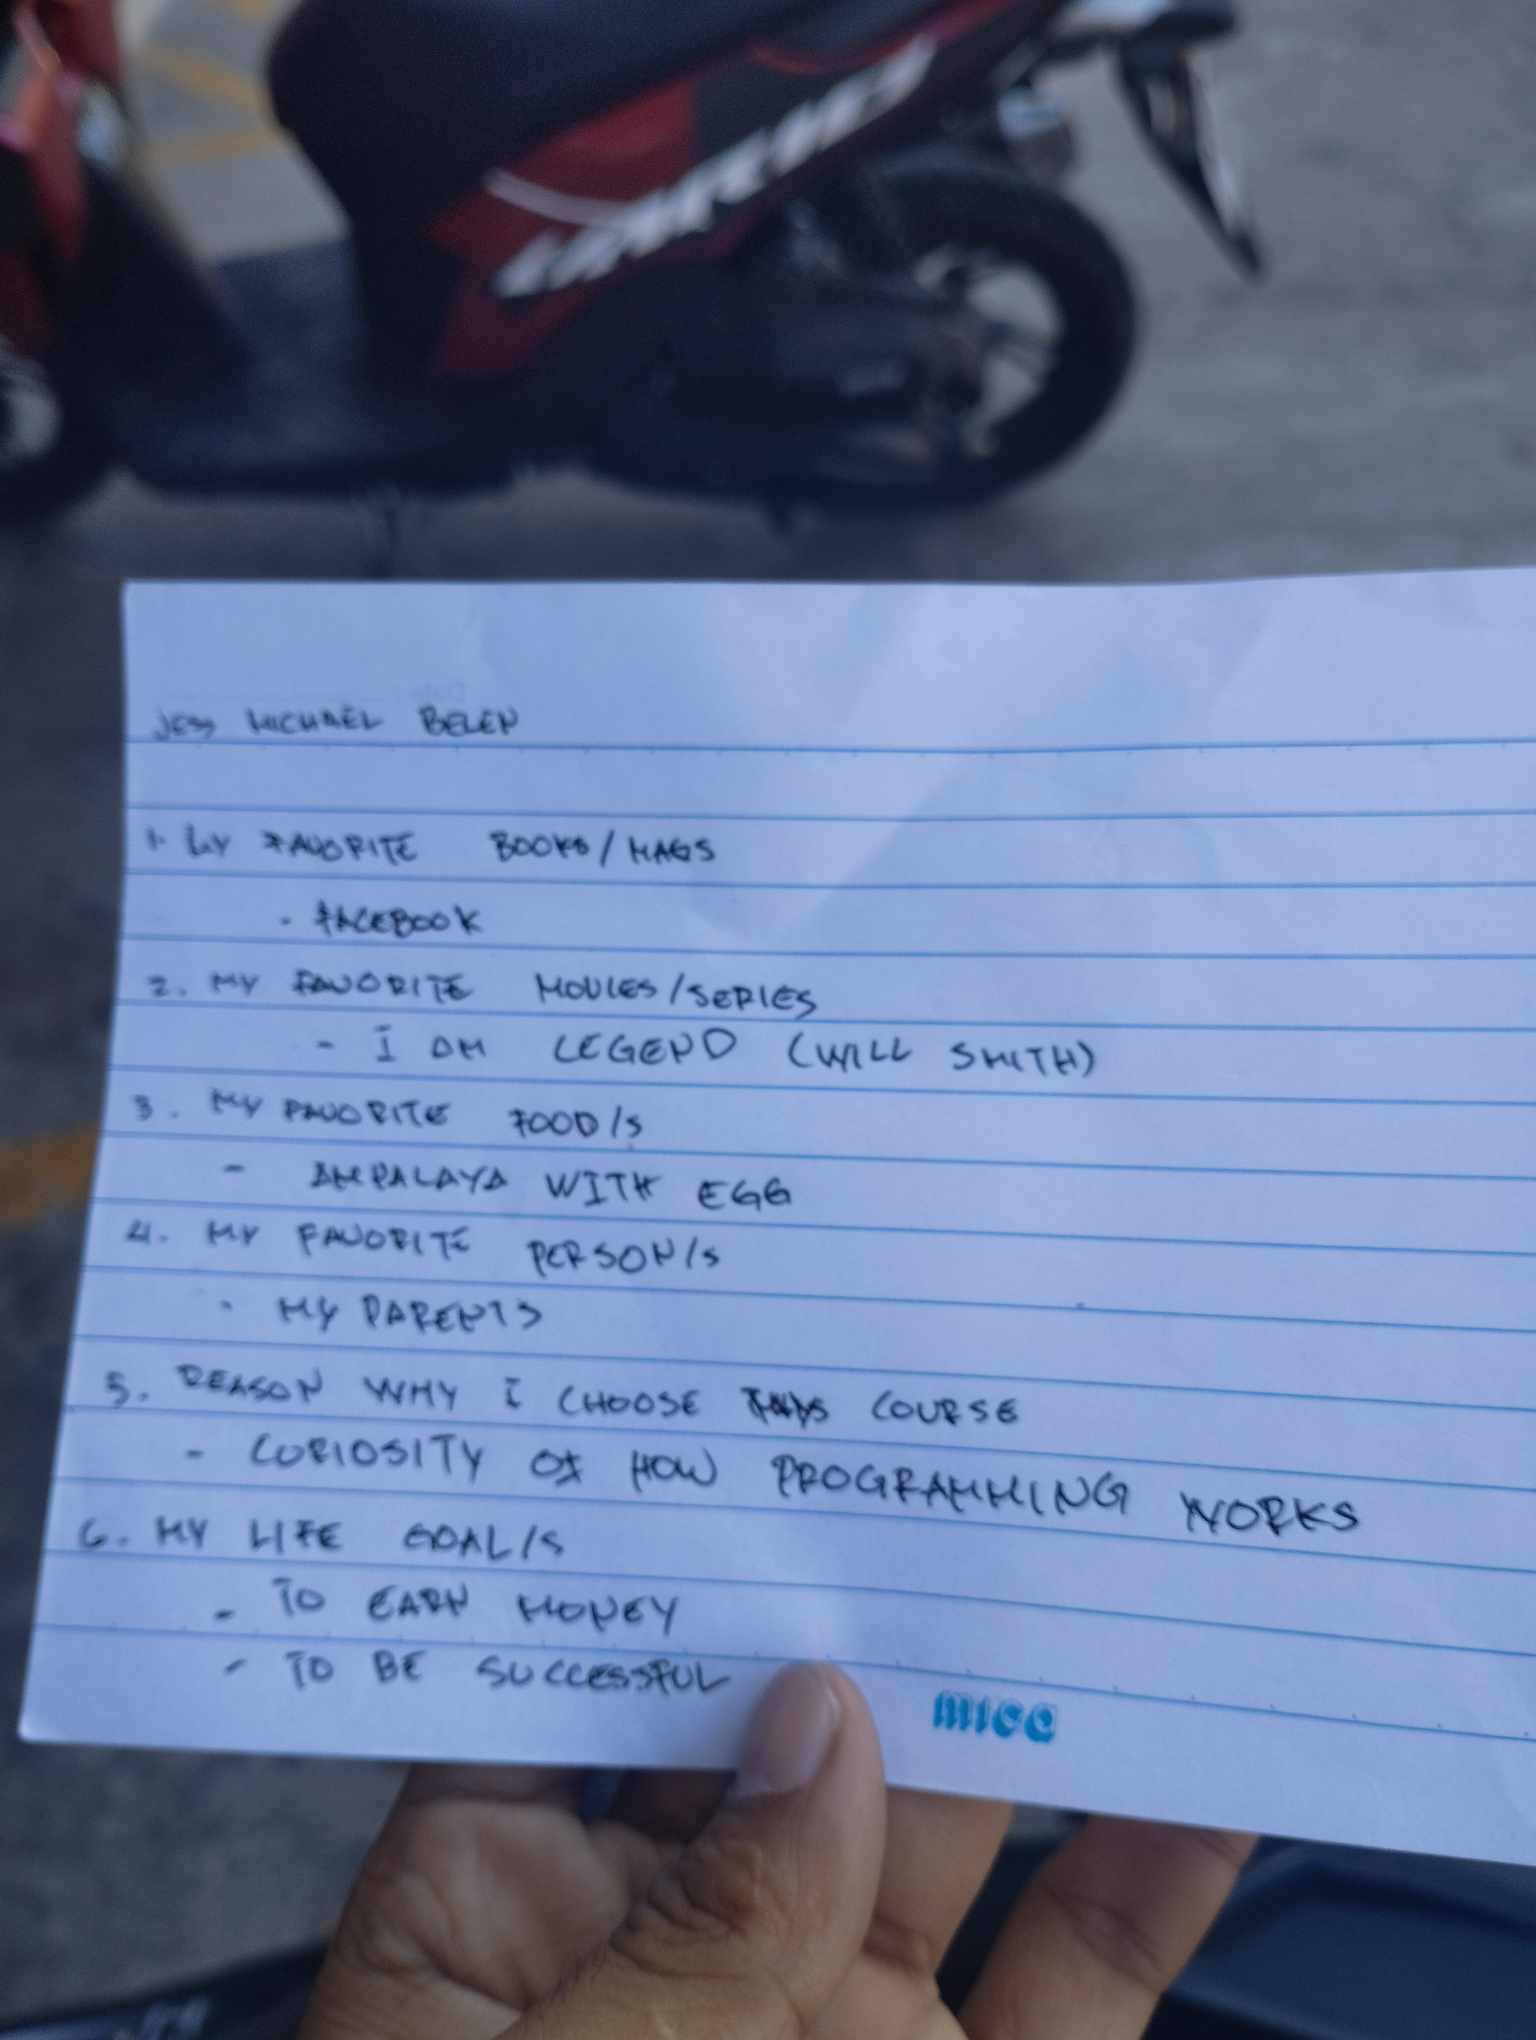 JESS MICHAEL BELEN
1. MY FAVORITE BOOKS/MAGS
- FACEBOOK
2. MY FAVORITE MOVIES/SERIES
- I AM LEGEND (WILL SMITH)
3. MY FAVORITE FOOD/S
- AMPALAYA WITH EGG
4. MY FAVORITE PERSON/S
- MY PARENTS
5. REASON WHY I CHOOSE THIS COURSE
- CURIOSITY OF HOW PROGRAMMING WORKS
6. MY LIFE GOAL/S
- TO EARN MONEY
- TO BE SUCCESSFUL